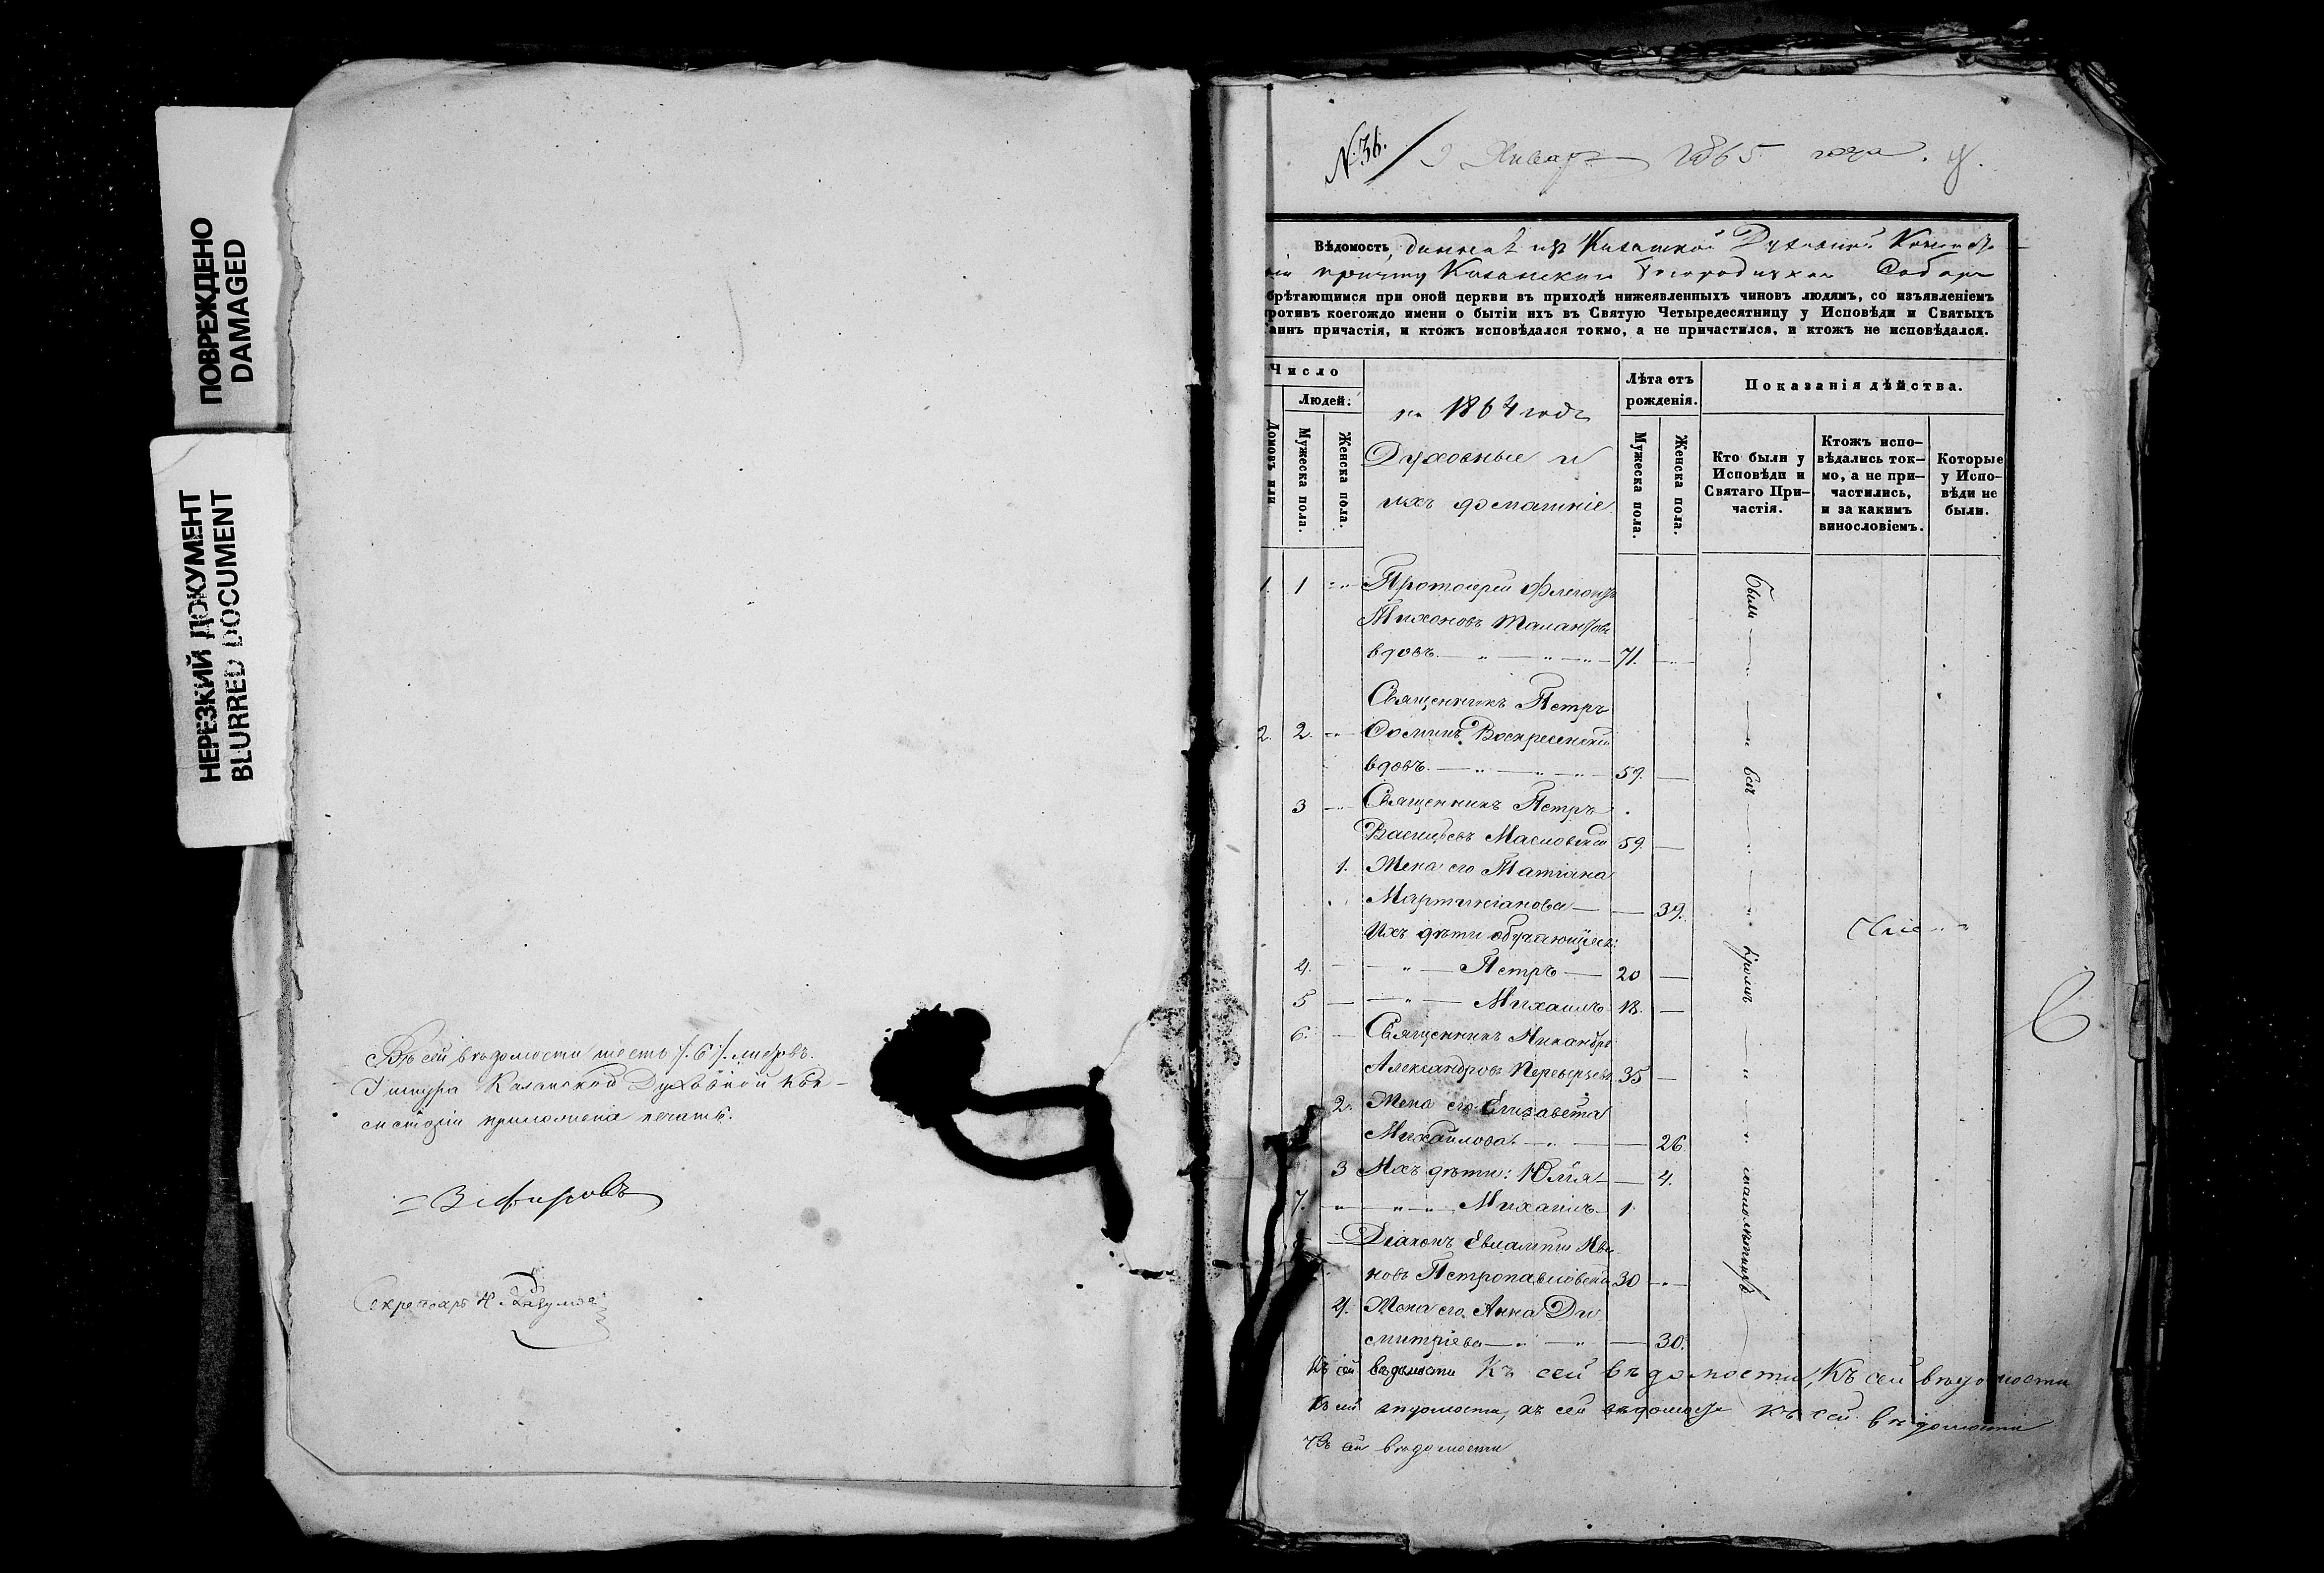 ПОВРЕЖДЕНО
DAMAGED
НЕРЕЗКИЙ ДОКУМЕНТ
BLURRED DOCUMENT
Въ сей вѣдомости шесть /.6/. листовъ.
Казанской Духовной Кон-
систоріи приложена печать.
Зефировъ
Секретарь Н.
№ 36.
9 Январ 1865 года.
Вѣдомость, данная изъ Казанской Духовной Консисто-
ріи причту Казанскаго Богородицкаго Собора
брѣтающимся при оной церкви въ приходѣ нижеявленныхъ чиновъ людямъ, со изъявленіемъ
ротивъ коегождо имени о бытіи ихъ въ Святую Четыредесятницу у Исповѣди и Святыхъ
аинъ причастія, и ктожъ исповѣдался токмо, а не причастился, и ктожъ не исповѣдался.
Число
Людей.
Домовъ или
Мужеска пола.
Женска пола.
на 1864 годъ
Духовные и
ихъ домашніе
Лѣта отъ
рожденія.
Мужеска пола.
Женска пола.
Показанія дѣйства.
Кто были у
Исповѣди и
Святаго При-
частія.
Ктожъ испо-
вѣдались ток-
мо, а не при-
частились,
и за какимъ
винословіемъ.
Которые
у Испо-
вѣди не
были.
1. 1 Протоіерей Флегонтъ
Тихоновъ Талантовъ
вдовъ. 71.
Священникъ Петръ
2. 2. Ѳоминъ Воскресенскій
вдовъ. 59.
3 Священникъ Петръ
Васильевъ Масловскій 59.
1. Жена его Татіана
Мартиніанова 39.
Ихъ дѣти обучающіяся:
4. Петръ 20
5 Михаилъ 18.
6. Священникъ Никандръ
Александровъ 35
2. Жена его Елизавета
Михайлова. 26
3 Ихъ дѣти: Юлія 4.
7. Михаилъ 1
Діаконъ Евлампій Ива
новъ Петропавловскій 30
4. Жена его Анна Ди
митріева 30.
Были всѣ кромѣ малолѣтнихъ
Къ сей вѣдомости Къ сей вѣдомости, Къ сей вѣдомости
Къ сей вѣдомости, къ сей вѣдомости Къ сей вѣдомости
Къ сей вѣдомости